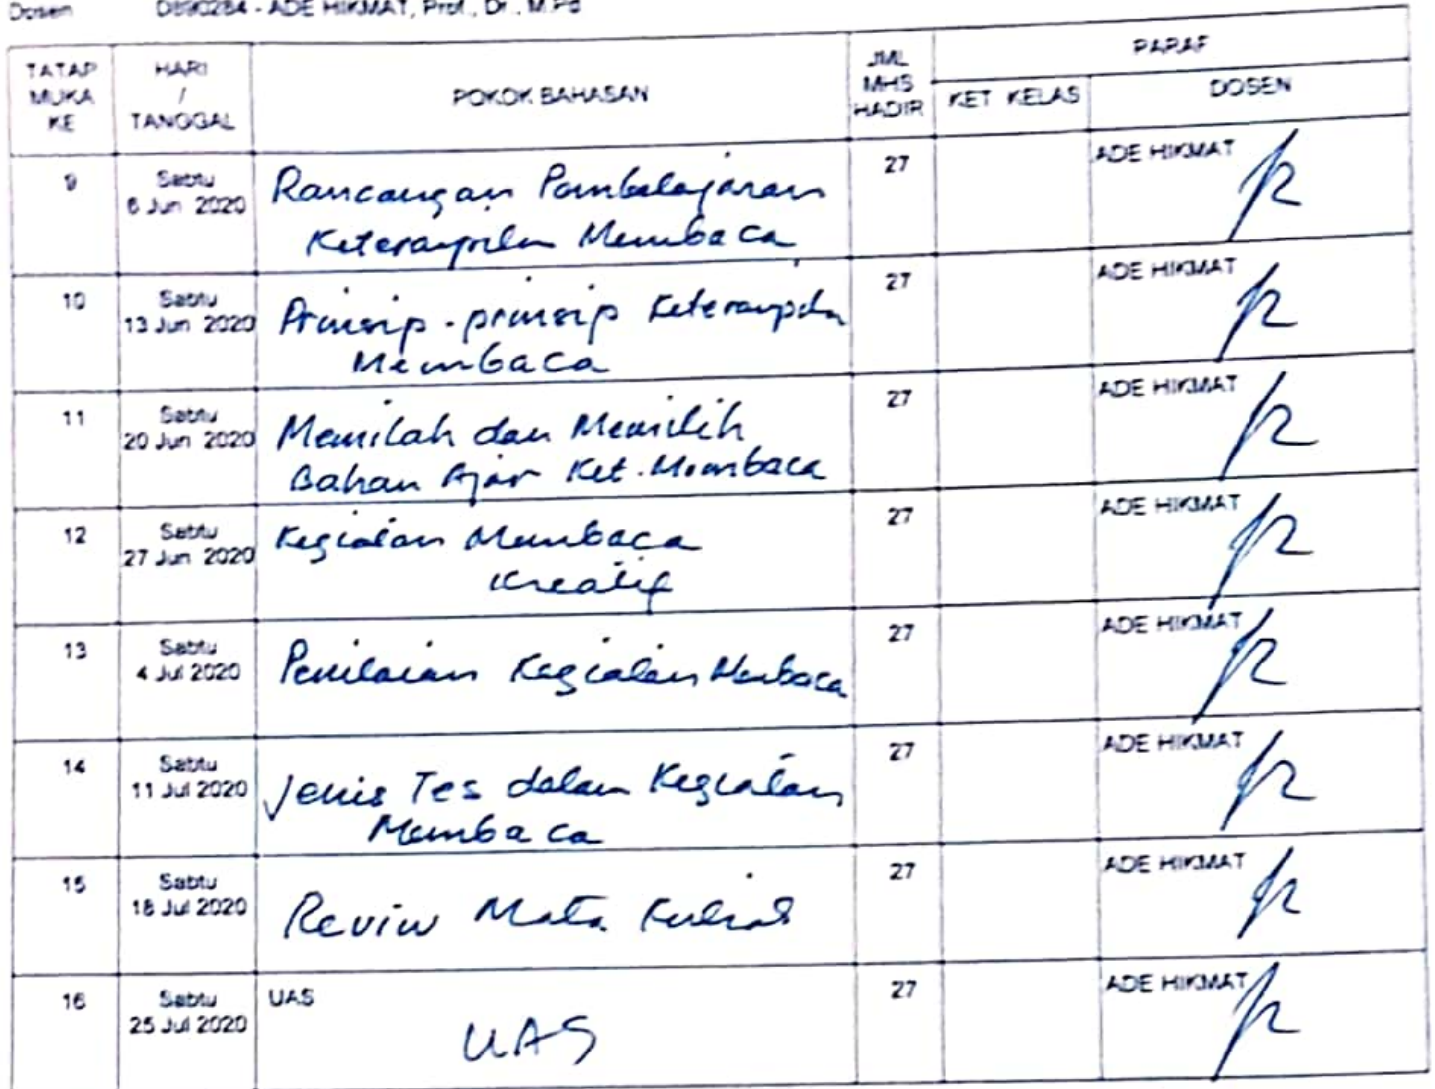 Dosen D890284 - ADE HIKMAT, Prof., Dr., M.Pd
TATAP MUKA KE
HARI / TANGGAL
POKOK BAHASAN
JML MHS HADIR
PARAF
KET KELAS
DOSEN
9 Sabtu 6 Jun 2020 Rancangan Pembelajaran Keterampilan Membaca 27 ADE HIKMAT
10 Sabtu 13 Jun 2020 Prinsip-prinsip Keterampilan Membaca 27 ADE HIKMAT
11 Sabtu 20 Jun 2020 Memilah dan Memilih Bahan Ajar Ket. Membaca 27 ADE HIKMAT
12 Sabtu 27 Jun 2020 Kegiatan Membaca Kreatif 27 ADE HIKMAT
13 Sabtu 4 Jul 2020 Penilaian Kegiatan Membaca 27 ADE HIKMAT
14 Sabtu 11 Jul 2020 Jenis Tes dalam Kegiatan Membaca 27 ADE HIKMAT
15 Sabtu 18 Jul 2020 Reviw Mata Kuliah 27 ADE HIKMAT
16 Sabtu 25 Jul 2020 UAS UAS 27 ADE HIKMAT